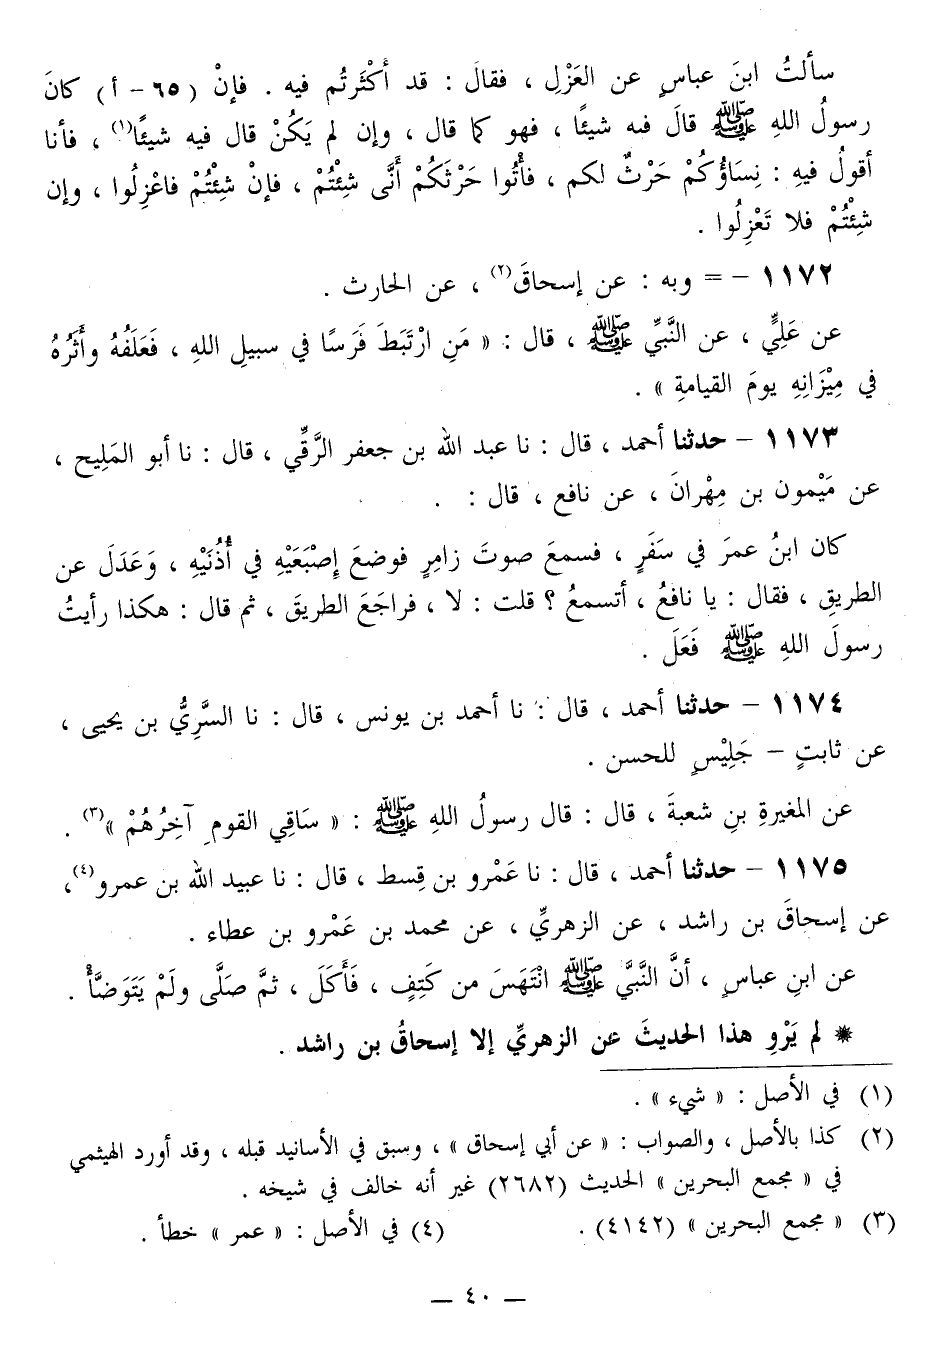 سألتُ ابنَ عباسٍ عن العَزْلِ ، فقالَ : قد أَكْثَرتُم فيه . فإنْ (٦٥ - أ) كانَ
رسولُ اللهِ ﷺ قالَ فىه شيئًا ، فهو كما قال ، وإن لم يَكُنْ قال فيه شيئًا(١) ، فأنا
أقولُ فيهِ : نِسَاؤُكُمْ حَرْثٌ لكم ، فأْتُوا حَرْثَكُمْ أَنَّى شِئْتُمْ ، فإنْ شِئْتُمْ فاعْزِلُوا ، وإن
شِئْتُمْ فلا تَعْزِلُوا .
١١٧٢ - = وبه : عن إسحاقَ(٢) ، عن الحارث .
عن عَلِيٍّ ، عن النَّبيِّ ﷺ ، قال : « مَنِ ارْتَبَطَ فَرَسًا في سبيلِ اللهِ ، فَعَلَفُهُ وأَثَرُهُ
في مِيْزَانِهِ يومَ القيامةِ » .
١١٧٣ - حدثنا أحمد ، قال : نا عبد الله بن جعفر الرَّقِّي ، قال : نا أبو المَليح ،
عن مَيْمون بن مِهْرانَ ، عن نافع ، قال : .
كان ابنُ عمرَ في سَفَرٍ ، فسمعَ صوتَ زامِرٍ فوضعَ إِصْبَعَيْهِ في أُذُنَيْهِ ، وَعَدَلَ عن
الطريقِ ، فقال : يا نافعُ ، أتسمعُ ؟ قلت : لا ، فراجَعَ الطريقَ ، ثم قال : هكذا رأيتُ
رسولَ اللهِ ﷺ فَعَلَ .
١١٧٤ - حدثنا أحمد ، قال : نا أحمد بن يونس ، قال : نا السَّرِيُّ بن يحيى ،
عن ثابتٍ - جَلِيْسٍ للحسن .
عن المغيرةِ بنِ شعبةَ ، قال : قال رسولُ اللهِ ﷺ : « سَاقِي القومِ آخِرُهُمْ »(٣) .
١١٧٥ - حدثنا أحمد ، قال : نا عَمْرو بن قِسط ، قال : نا عبيد الله بن عمرو(٤)،
عن إسحاقَ بن راشد ، عن الزهريِّ ، عن محمد بن عَمْرو بن عطاء .
عن ابنِ عباسٍ ، أنَّ النَّبيَّ ﷺ انْتَهَسَ من كَتِفٍ ، فَأَكَلَ ، ثمَّ صَلَّى ولَمْ يَتَوَضَّأْ .
❋ لم يَرْوِ هذا الحديثَ عن الزهريِّ إلا إسحاقُ بن راشد .
(١) في الأصل : « شيء » .
(٢) كذا بالأصل ، والصواب : « عن أبي إسحاق » ، وسبق في الأسانيد قبله ، وقد أورد الهيثمي
في « مجمع البحرين » الحديث (٢٦٨٢) غير أنه خالف في شيخه .
(٣) « مجمع البحرين » (٤١٤٢) . (٤) في الأصل : « عمر » خطأ .
— ٤٠ —